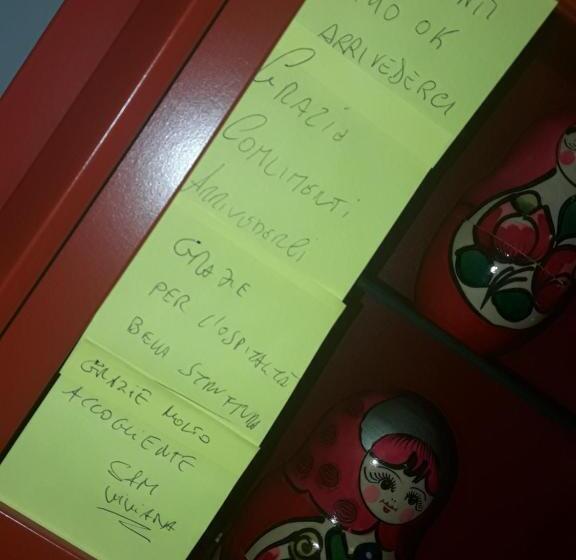 OK
ARRIVEDERCI
GRAZIE
COMLIMENTI
ARRIVEDERCI
GRAZIE
PER L'OSPITALITÀ
BELLA STRUTTURA
GRAZIE MOLTO
ACCOGLIENTE
SAM
VIVIANA